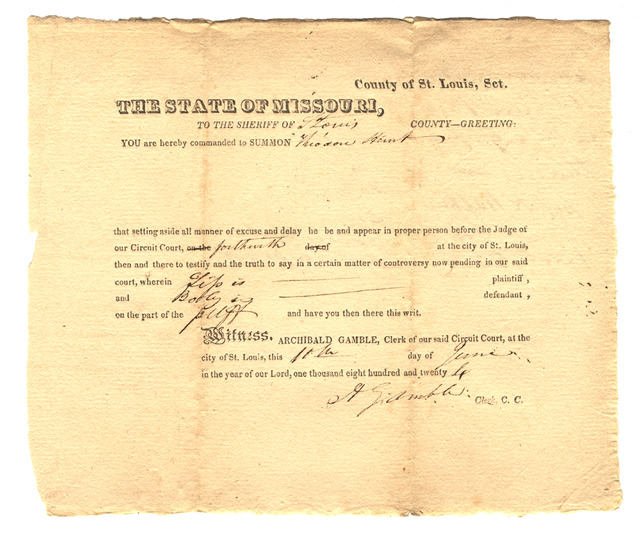 County of St. Louis, Sct.
THE STATE OF MISSOURI,
TO THE SHERIFF OF St Louis COUNTY—GREETING:
YOU are hereby commanded to SUMMON Theodore Hunt
that setting aside all manner of excuse and delay he be and appear in proper person before the Judge of
our Circuit Court, on the forthwith day of at the city of St. Louis,
then and there to testify and the truth to say in a certain matter of controversy now pending in our said
court, wherein is plaintiff,
and is defendant,
on the part of the pltff and have you then there this writ.
Witness. ARCHIBALD GAMBLE, Clerk of our said Circuit Court, at the
city of St. Louis, this 10th day of June
in the year of our Lord, one thousand eight hundred and twenty
A Gamble Clerk, C. C.